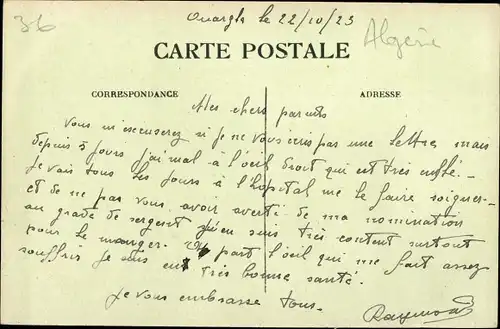 36
Ouargla le 22/10/23
Algérie
CARTE POSTALE
CORRESPONDANCE
ADRESSE
Mes chers parents
Vous m'excuserez si je ne vous écris pas une lettre mais
depuis 5 jours j'ai mal à l'œil droit qui est très enflé. -
Je vais tous les jours à l'hôpital me le faire soigner -
et de ne pas vous avoir averti de ma nomination
au grade de sergent j'en suis très content surtout
pour le manger. part l'œil qui me fait assez
souffrir je suis en très bonne santé.
Je vous embrasse tous.
Raymond